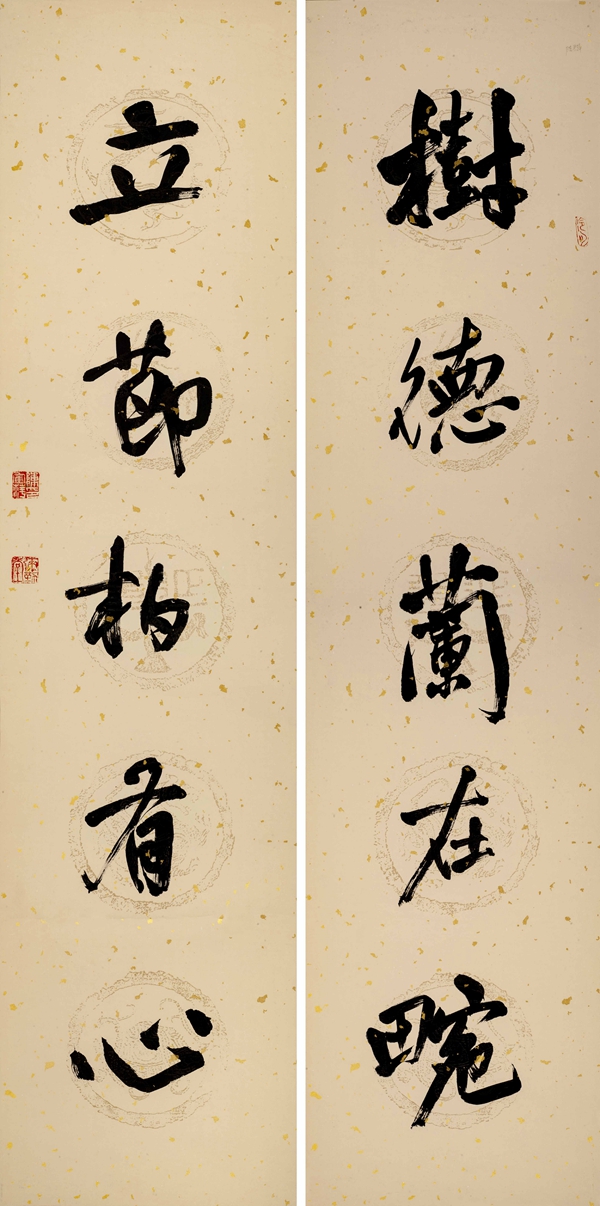 樹德蘭在畹
立節柏有心